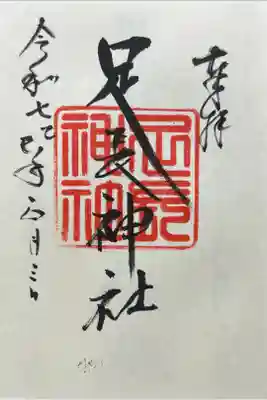 奉拝
足長神社
足長
神社
令和七乙巳年 月三日